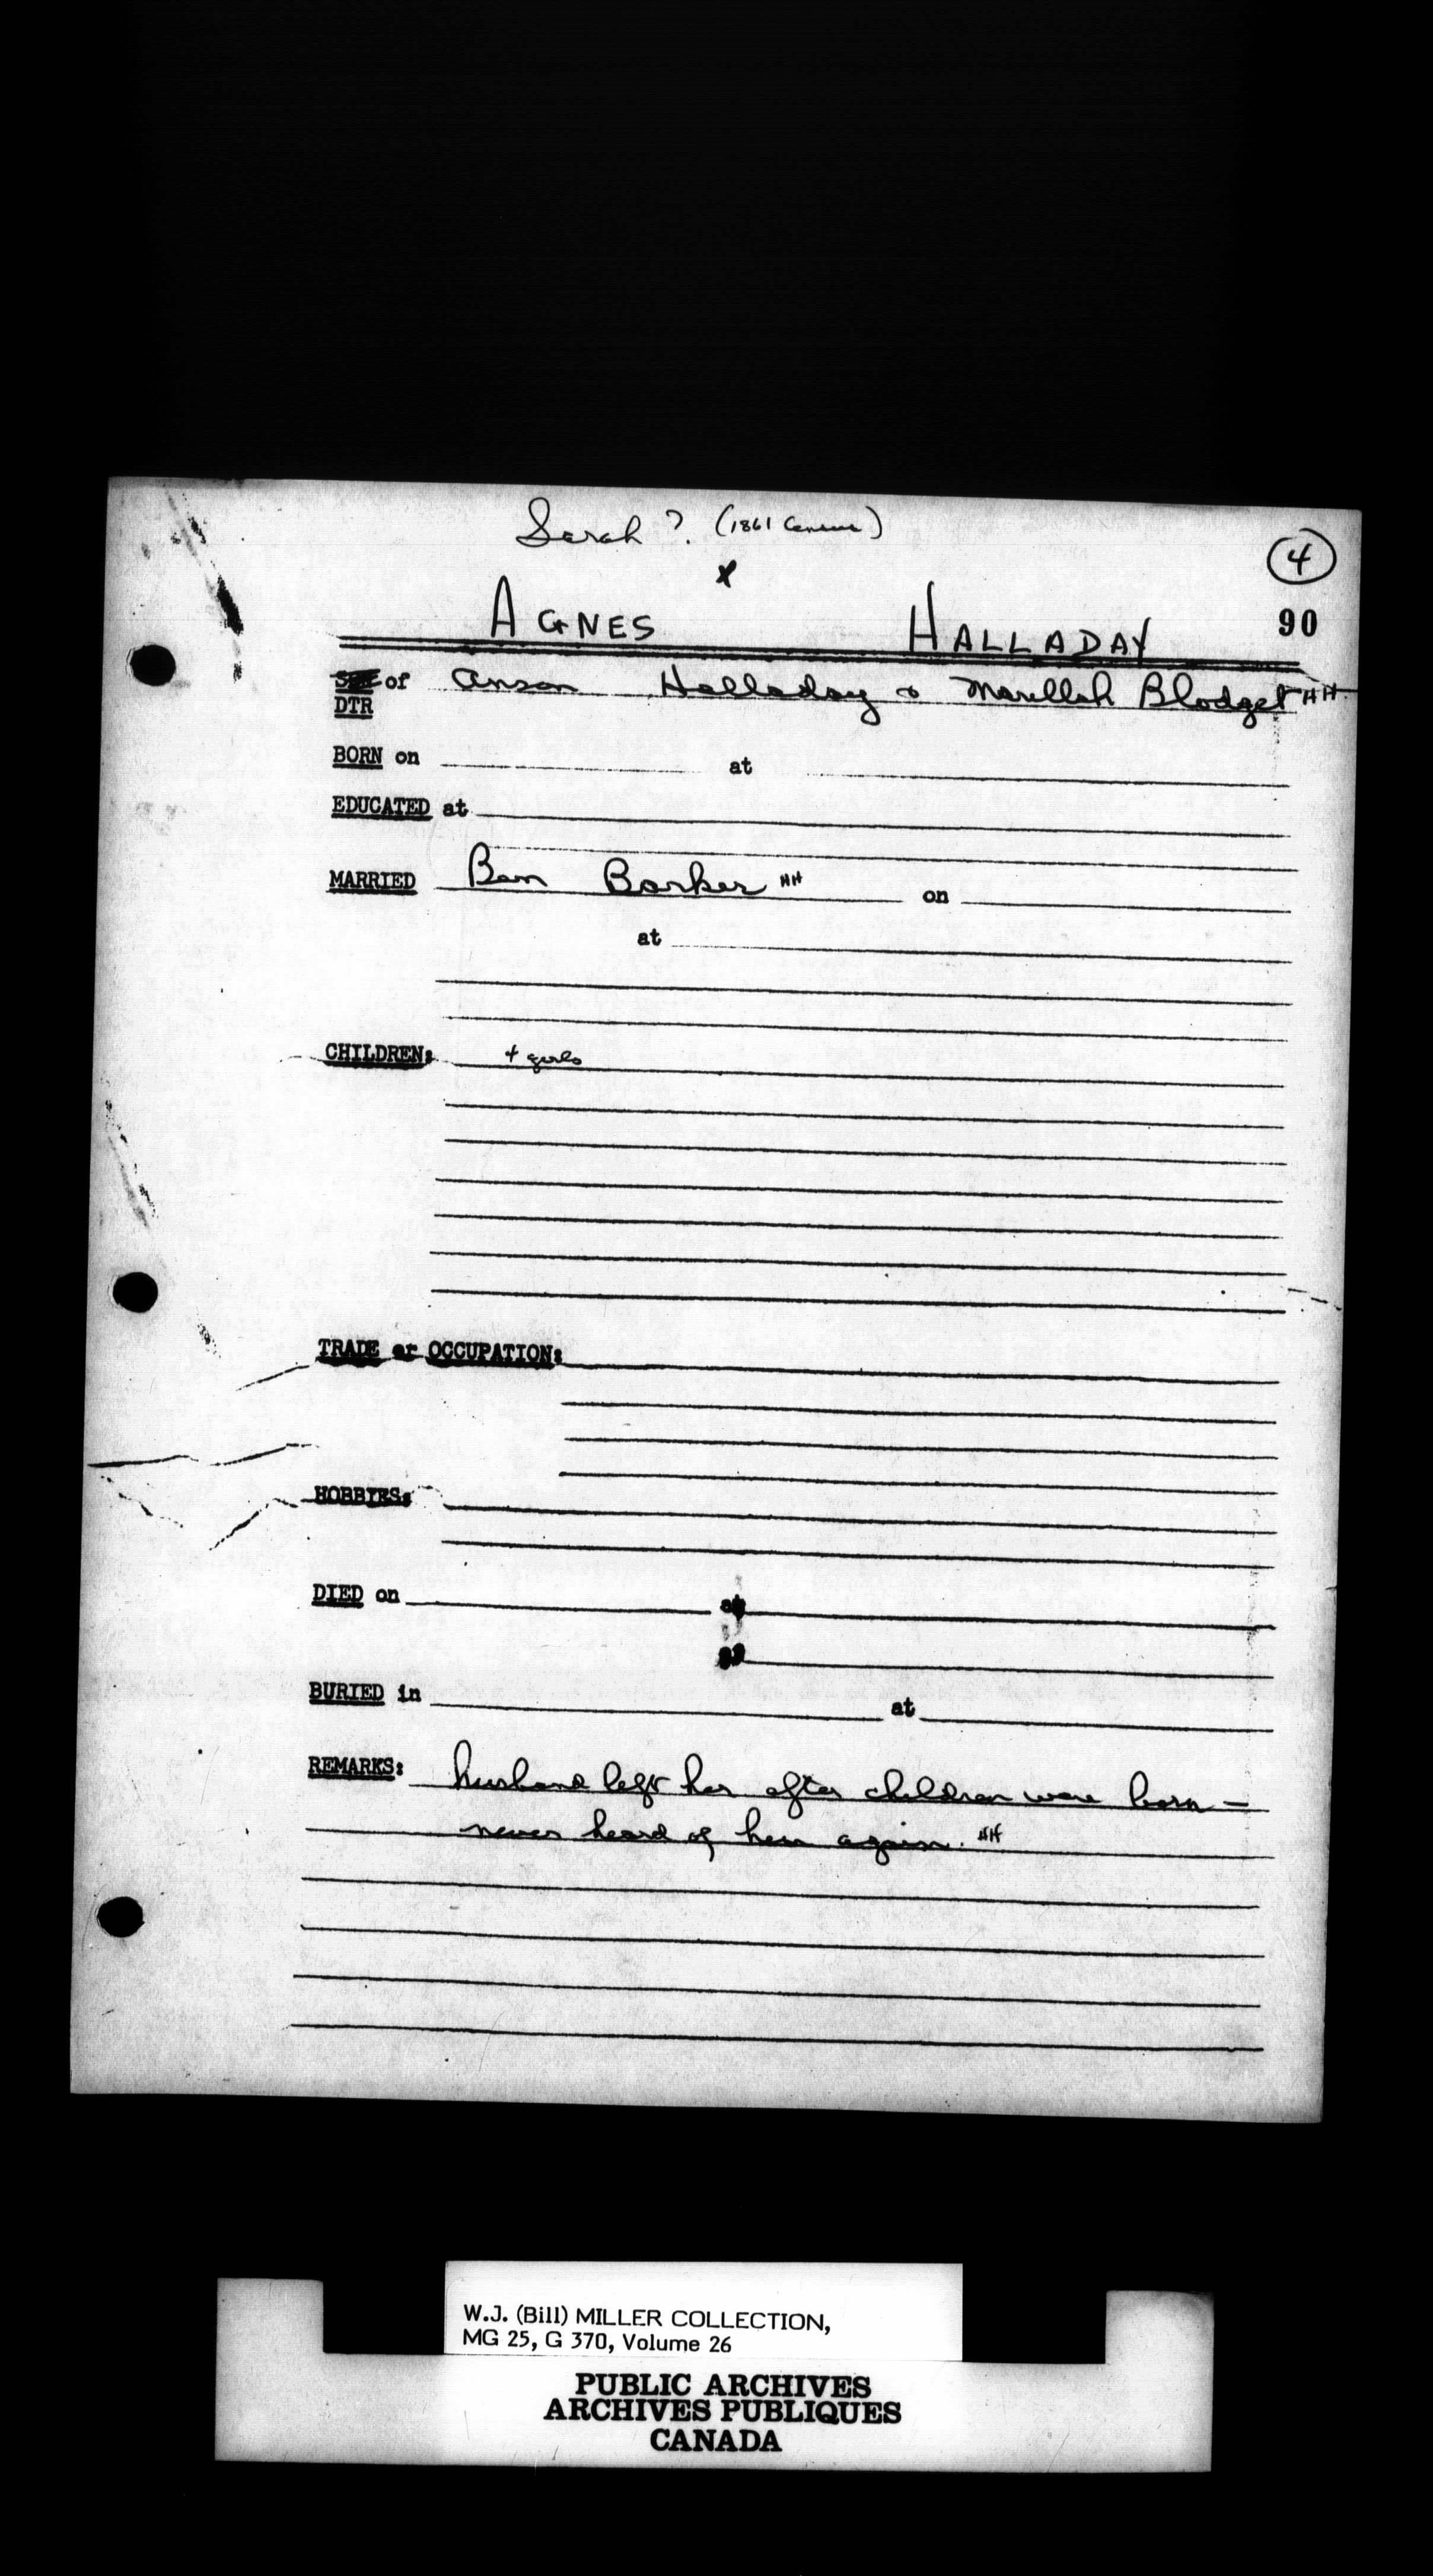 Sarah? (1861 Census)
4
x
AGNES HALLADAY
90
of Anson Halladay & Marillah Blodget HH
DTR
BORN on at
EDUCATED at
MARRIED Ben Barker HH on
at
CHILDREN: 4 girls
TRADE or OCCUPATION:
HOBBIES:
DIED on at
BURIED in at
REMARKS: husband left her after children were born -
never heard of him again. HH
W.J. (Bill) MILLER COLLECTION,
MG 25, G 370, Volume 26
PUBLIC ARCHIVES
ARCHIVES PUBLIQUES
CANADA